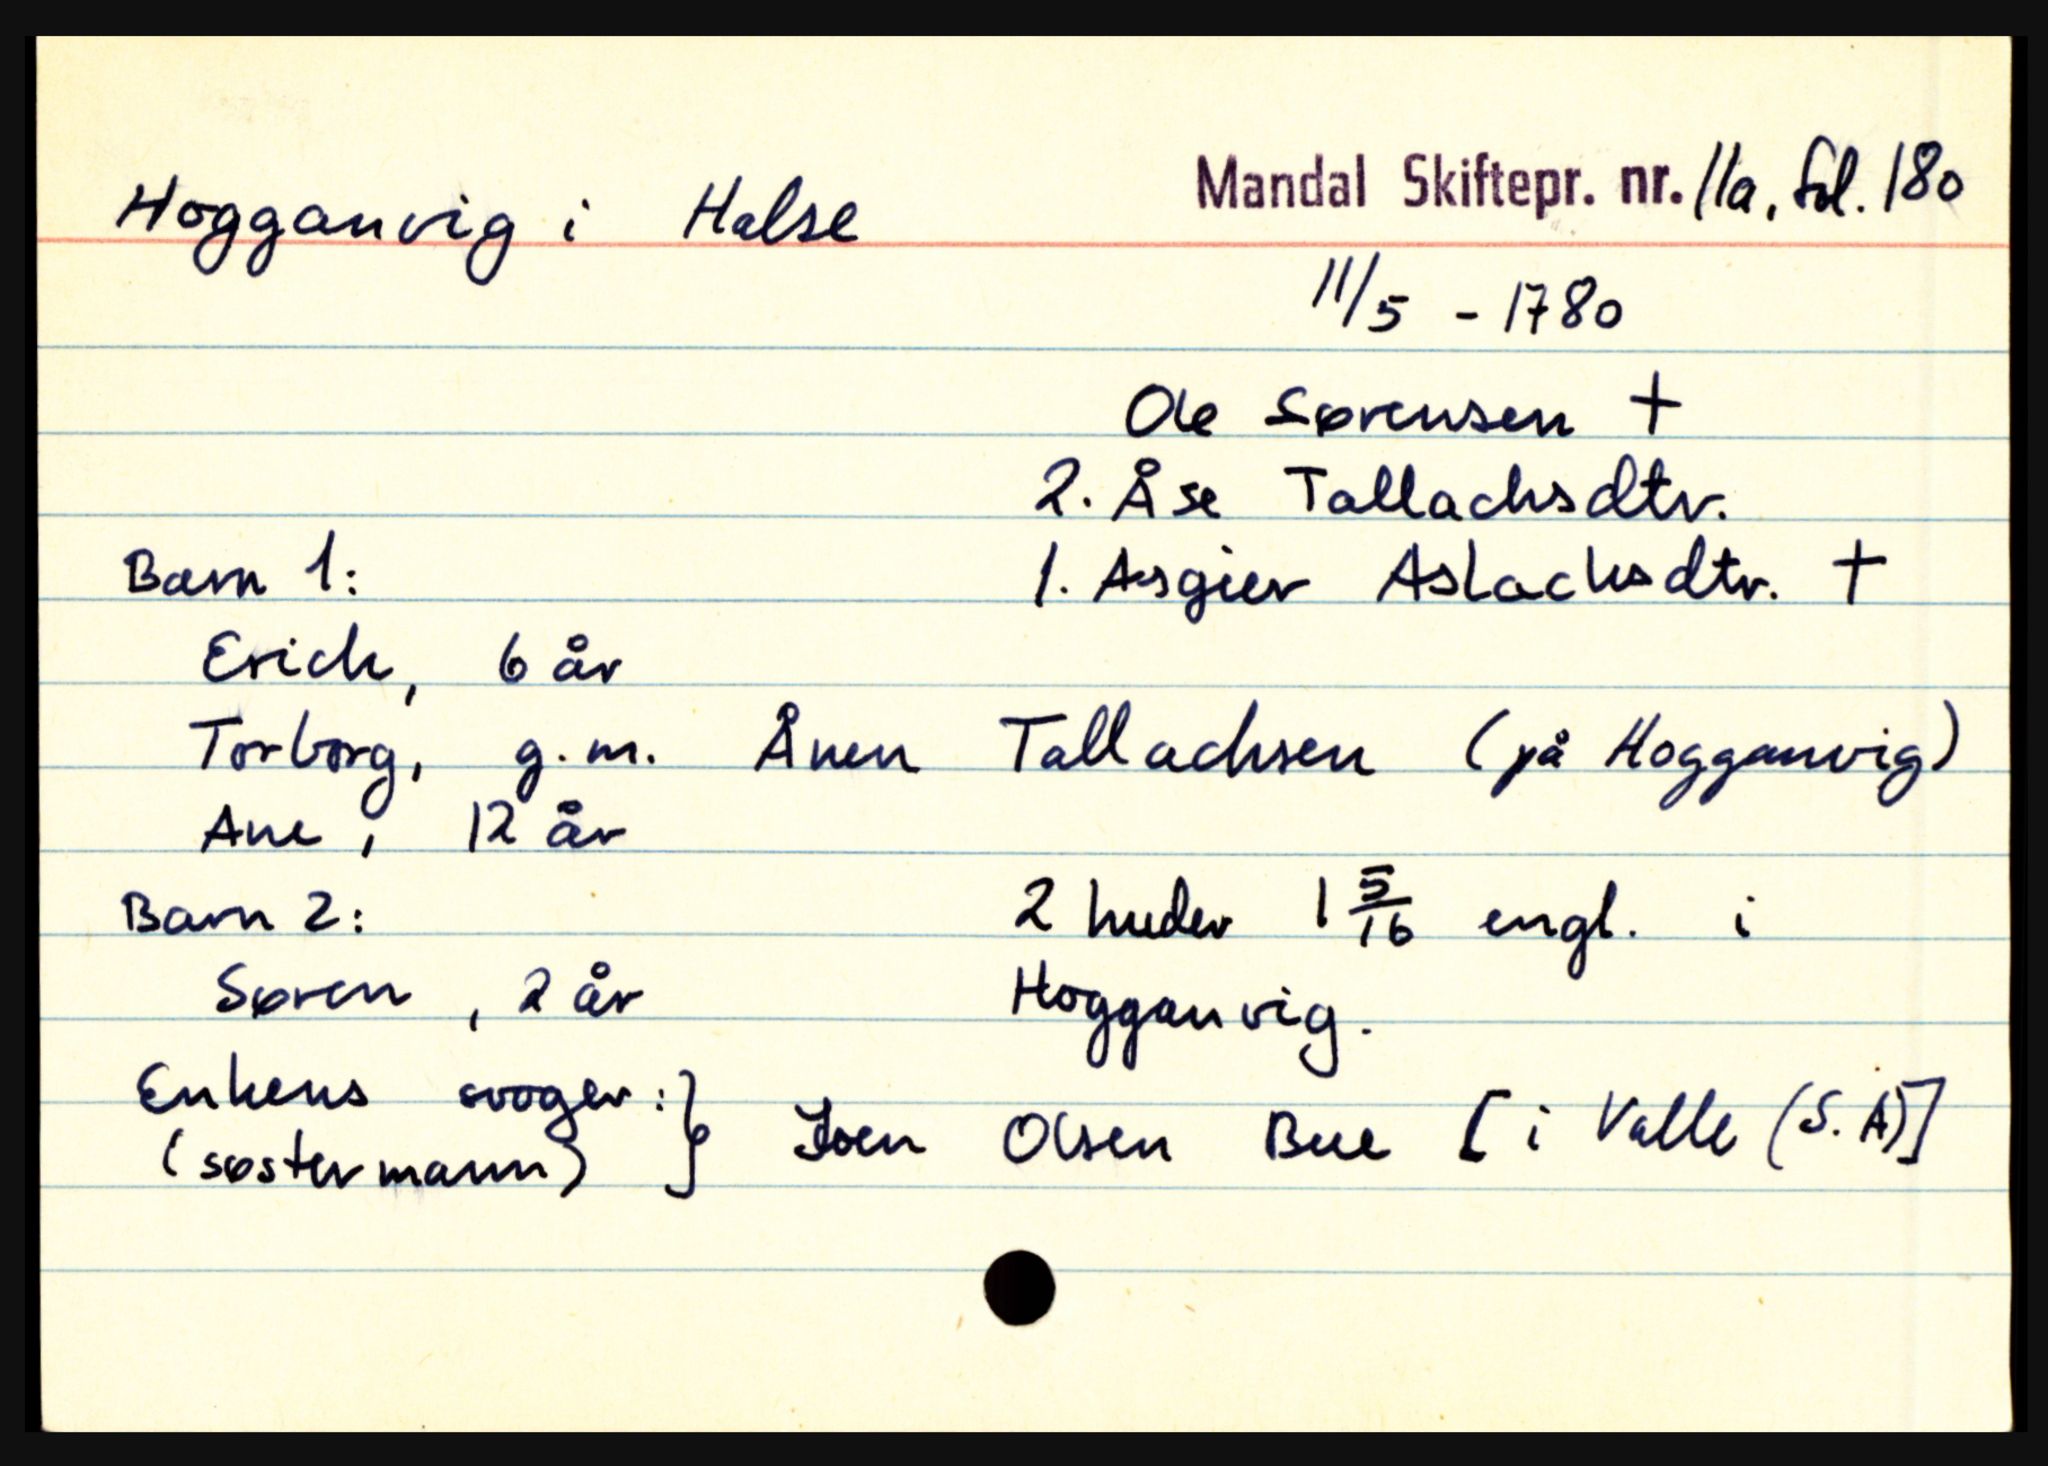 Hogganvig i Halse Mandal Skiftepr. nr. 11a, fol. 180
11/5 - 1780
Ole Sørensen †
2. Åse Tallachsdtr.
Barn 1: 1. Asgier Aslachsdtr. †
Erich, 6 år
Torborg, g.m. Ånen Tallachsen (på Hogganvig)
Ane, 12 år
Barn 2: 2 huder 1 5/16 engl. i
Søren, 2 år Hogganvig.
Enkens svoger: } Olsen Bue [i Valle (S.A)]
(søstermann)